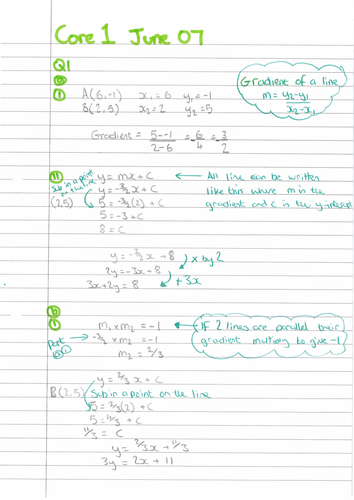 Core 1 June 07
Q1
a
i) A(6,-1) x₁=6 y₁=-1
B(2,5) x₂=2 y₂=5
Gradient of a line
m=y₂-y₁
x₂-x₁
Gradient = 5--1 = -6 = -3
2-6 4 2
ii) y=mx+c
All line can be written
like this where m is the
gradient and c is the y-intercept
Sub in a point
on the line
(2,5)
y=-3/2x+c
5=-3/2(2)+c
5=-3+c
8=c
y=-3/2x+8
x by 2
2y=-3x+8
+3x
3x+2y=8
b
i) m₁xm₂=-1
If 2 lines are parallel their
gradient multiply to give -1
Part
-3/2xm₂=-1
m₂=2/3
y=2/3x+c
B(2,5)
Sub in a point on the line
5=2/3(2)+c
5=4/3+c
11/3=c
y=2/3x+11/3
3y=2x+11